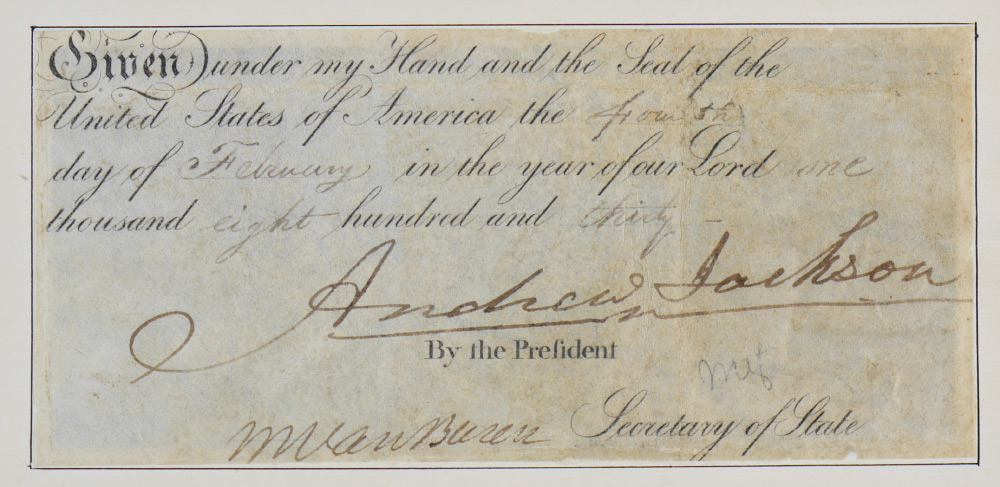 Given under my Hand and the Seal of the
United States of America the fourth
day of February in the year of our Lord one
thousand eight hundred and thirty -
Andrew Jackson
By the Preſident
M Van Buren Secretary of State